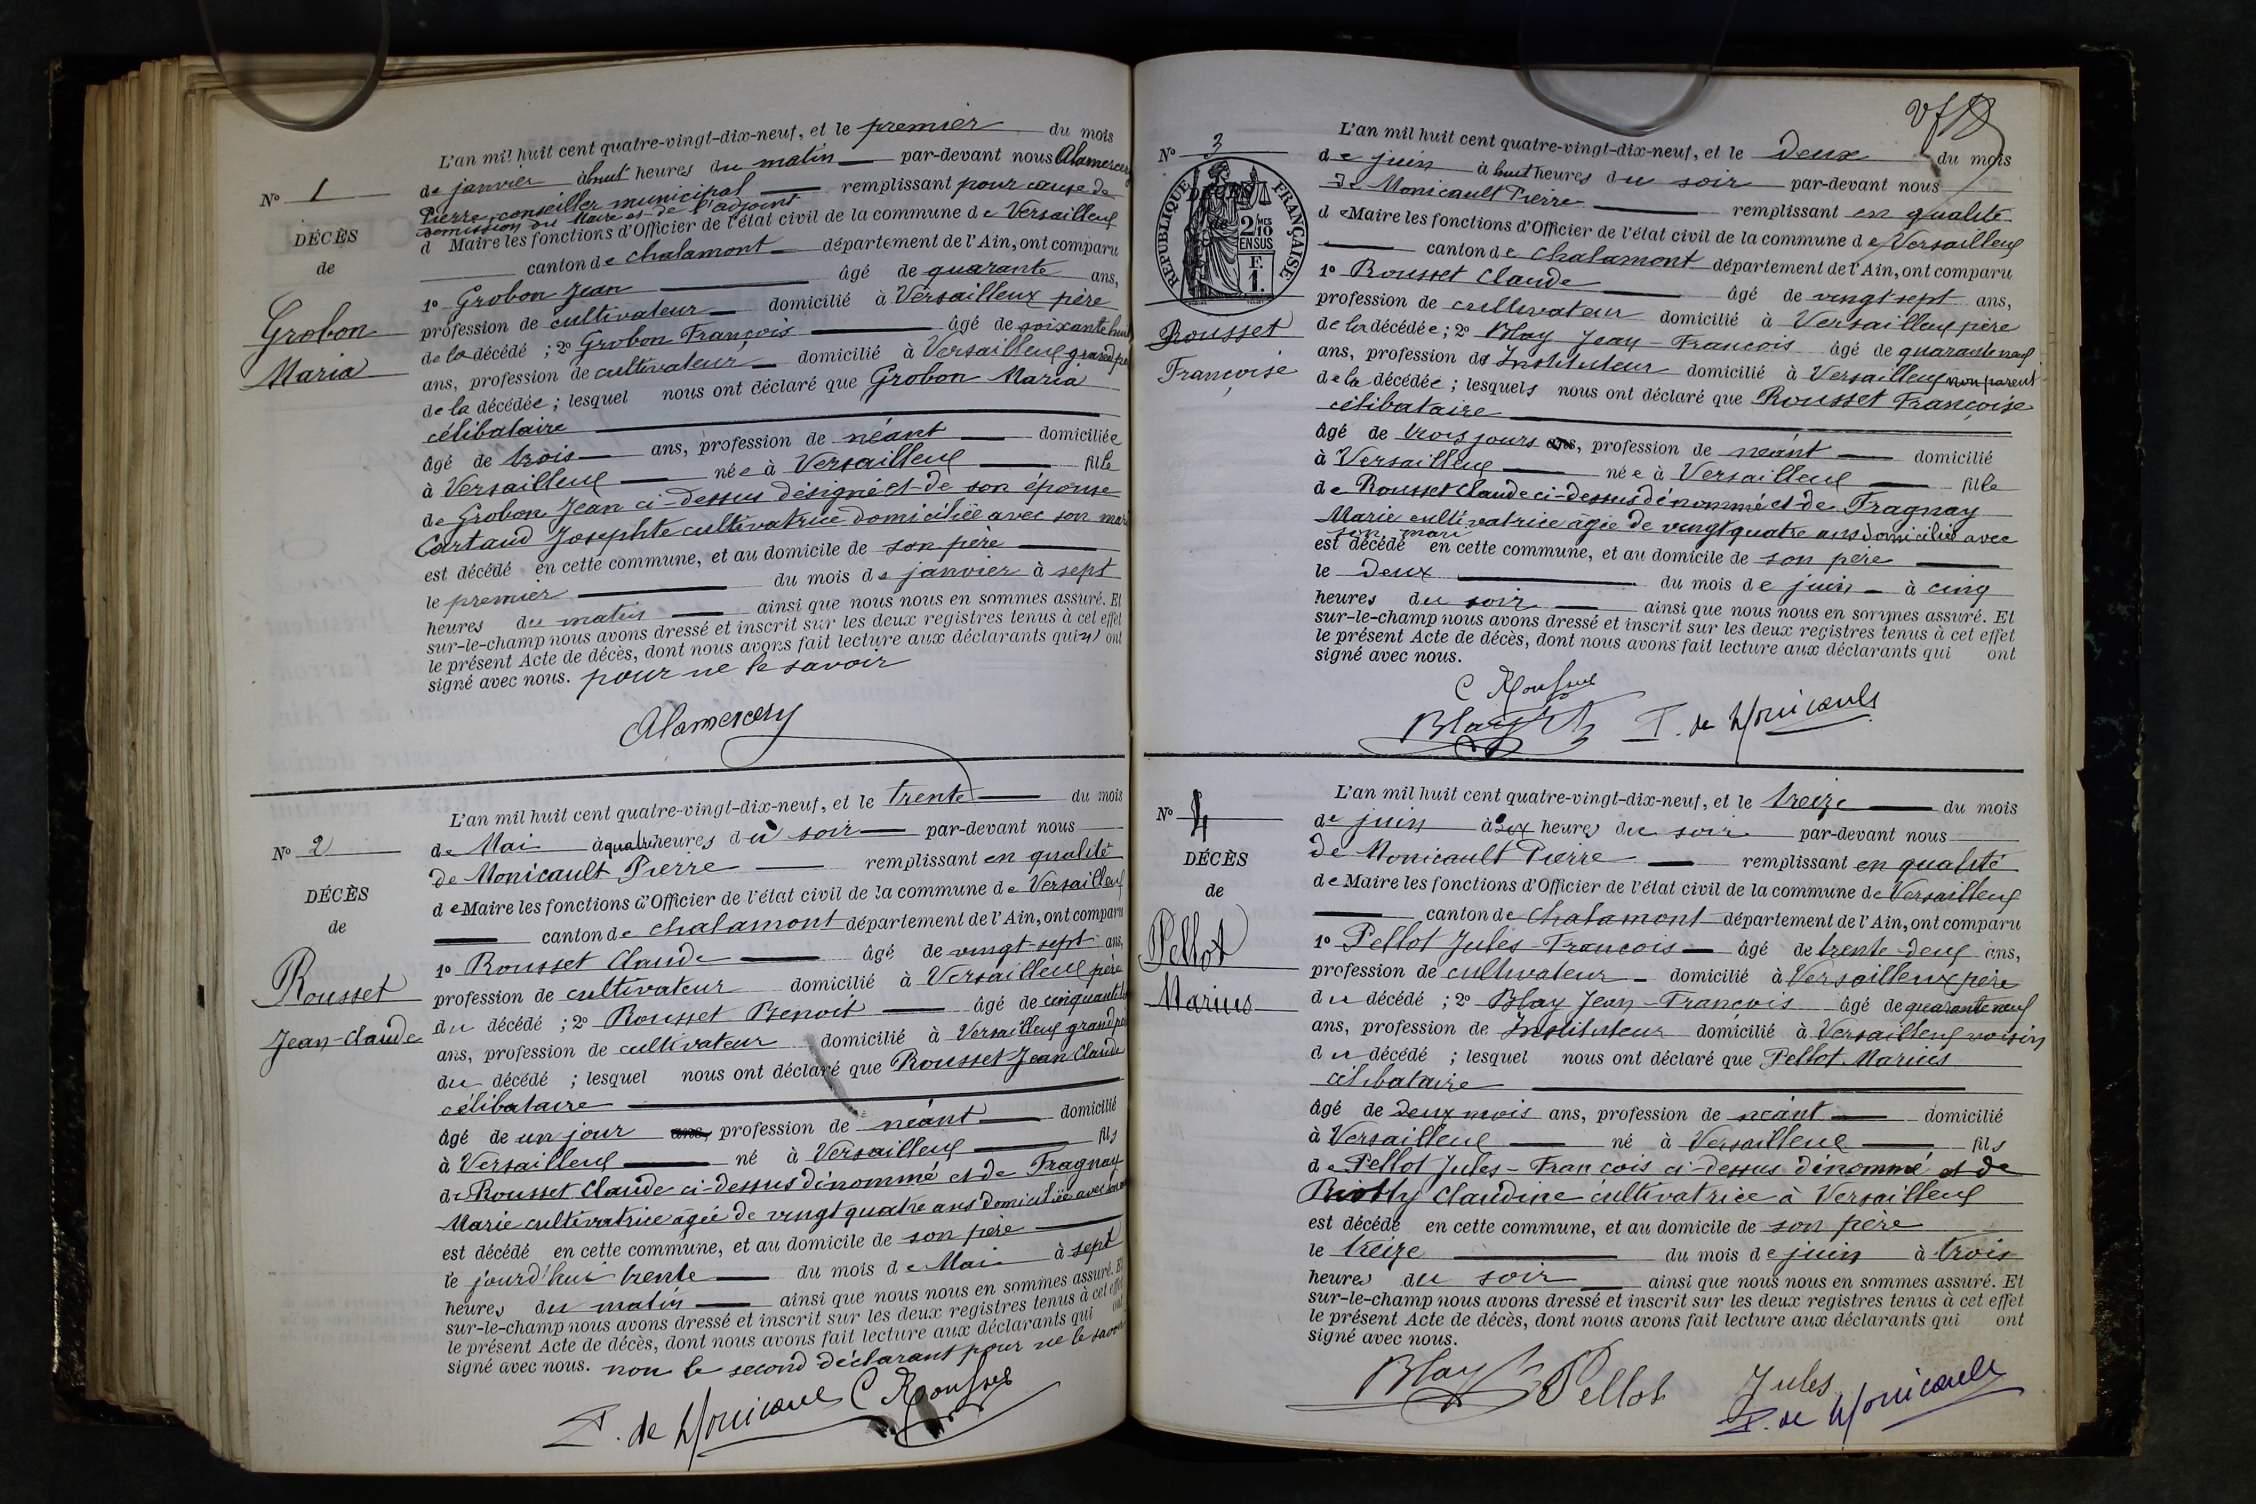 L'an mil huit cent quatre-vingt-dix-neuf, et le premier du mois
de janvier à huit heures du matin par-devant nous Alamercery
Pierre, conseiller municipal remplissant pour cause de
démission du Maire et de l'adjoint
d Maire les fonctions d'Officier de l'état civil de la commune de Versailleux
canton de Chalamont département de l'Ain, ont comparu
1º Grobon Jean âgé de quarante ans,
profession de cultivateur domicilié à Versailleux père
de la décédé ; 2º Grobon François âgé de soixante huit
ans, profession de cultivateur domicilié à Versailleux grand père
de la décédée ; lesquel nous ont déclaré que Grobon Maria
célibataire
âgé de trois ans, profession de néant domiciliée
à Versailleux née à Versailleux fille
de Grobon Jean ci-dessus désigné et de son épouse
Cartaud Josephte cultivatrice domiciliée avec son mari
est décédé en cette commune, et au domicile de son père
le premier du mois de janvier à sept
heures du matin ainsi que nous nous en sommes assuré. Et
sur-le-champ nous avons dressé et inscrit sur les deux registres tenus à cet effet
le présent Acte de décès, dont nous avons fait lecture aux déclarants qui n' ont
signé avec nous. pour ne le savoir
Alamercery
Nº 1
DÉCÈS
de
Grobon
Maria
L'an mil huit cent quatre-vingt-dix-neuf, et le trente du mois
de Mai à quatre heures du soir par-devant nous
de Monicault Pierre remplissant en qualité
de Maire les fonctions d'Officier de l'état civil de la commune de Versailleux
canton de Chalamont département de l'Ain, ont comparu
1º Rousset Claude âgé de vingt-sept ans,
profession de cultivateur domicilié à Versailleux père
du décédé ; 2º Rousset Benoit âgé de cinquante
ans, profession de cultivateur domicilié à Versailleux grand père
du décédé ; lesquel nous ont déclaré que Rousset Jean Claude
célibataire
âgé de un jour ans, profession de néant domicilié
à Versailleux né à Versailleux fils
de Rousset Claude ci-dessus dénommé et de Fragnay
Marie cultivatrice agée de vingt quatre ans domiciliée avec son mari
est décédé en cette commune, et au domicile de son père
le jourd'hui trente du mois de Mai à sept
heures du matin ainsi que nous nous en sommes assuré. Et
sur-le-champ nous avons dressé et inscrit sur les deux registres tenus à cet effet
le présent Acte de décès, dont nous avons fait lecture aux déclarants qui ont
signé avec nous. non le second déclarant pour ne le savoir
P. de Monicault C Rousset
Nº 2
DÉCÈS
de
Rousset
Jean-Claude
L'an mil huit cent quatre-vingt-dix-neuf, et le deux du mois
de juin à huit heures du soir par-devant nous
de Monicault Pierre remplissant en qualité
de Maire les fonctions d'Officier de l'état civil de la commune de Versailleux
canton de Chalamont département de l'Ain, ont comparu
1º Rousset Claude âgé de vingt sept ans,
profession de cultivateur domicilié à Versailleux père
de la décédée ; 2º Blay Jean-François âgé de quarante neuf
ans, profession de Instituteur domicilié à Versailleux non parent
de la décédée ; lesquels nous ont déclaré que Rousset Françoise
célibataire
âgé de trois jours ans, profession de néant domicilié
à Versailleux née à Versailleux fille
de Rousset Claude ci-dessus dénommé et de Fragnay
Marie cultivatrice âgée de vingt quatre ans domiciliée avec
son mari
est décédé en cette commune, et au domicile de son père
le deux du mois de juin à cinq
heures du soir ainsi que nous nous en sommes assuré. Et
sur-le-champ nous avons dressé et inscrit sur les deux registres tenus à cet effet
le présent Acte de décès, dont nous avons fait lecture aux déclarants qui ont
signé avec nous.
C Rousset
Blay P. de Monicault
Nº 3
RÉPUBLIQUE FRANÇAISE
DÉCÈS
2/10 MES
EN SUS
F.
1.
Rousset
Françoise
L'an mil huit cent quatre-vingt-dix-neuf, et le treize du mois
de juin à six heures du soir par-devant nous
de Monicault Pierre remplissant en qualité
de Maire les fonctions d'Officier de l'état civil de la commune de Versailleux
canton de Chalamont département de l'Ain, ont comparu
1º Pellot Jules-François âgé de trente-deux ans,
profession de cultivateur domicilié à Versailleux père
du décédé ; 2º Blay Jean-François âgé de quarante neuf
ans, profession de Instituteur domicilié à Versailleux voisin
du décédé ; lesquel nous ont déclaré que Pellot Marius
célibataire
âgé de deux mois ans, profession de néant domicilié
à Versailleux né à Versailleux fils
de Pellot Jules-François ci-dessus dénommé et de
Claudine cultivatrice à Versailleux
est décédé en cette commune, et au domicile de son père
le treize du mois de juin à trois
heures du soir ainsi que nous nous en sommes assuré. Et
sur-le-champ nous avons dressé et inscrit sur les deux registres tenus à cet effet
le présent Acte de décès, dont nous avons fait lecture aux déclarants qui ont
signé avec nous.
Blay Pellot Jules
P. de Monicault
Nº 4
DÉCÈS
de
Pellot
Marius